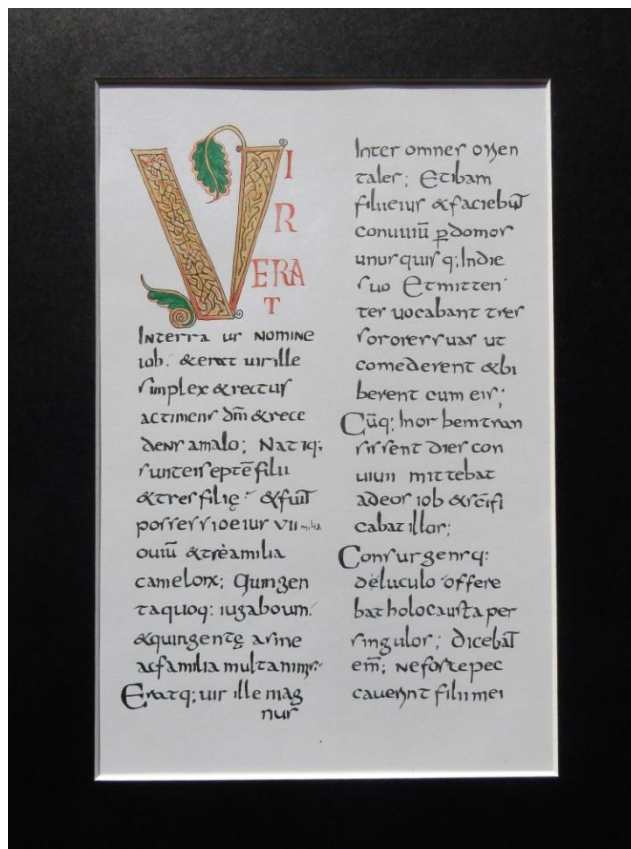 VIR
ERAT
Interra us NOMINE
iob. & erat uir ille
simplex & rectus
ac timens dm̄ & rece
dens amalo; Natiq;
sunt ei septē filii
& tres filię & fuit̄
possessio eius VII milia
ouiū & trea milia
camelorꝝ; Quingen
ta quoq: iuga boum.
& quingentę asine
ac familia multa nimis.
Eratq; uir ille mag
nus
Inter omnes orien
tales; Et ibant
filii eius & faciebant̄
conuiuiū ꝑ domos
unus quis q; In die
suo Et mitten
tes uocabant tres
sorores suas ut
comederent & bi
berent cum eis;
Cūq; In orbem tran
sissent dies con
uiuii mittebat
ad eos iob & sc̄ifi
cabat illos;
Consurgensq:
deluculo offere
bat holocausta per
singulos; dicebat̄
em̄; Ne forte pec
cauerint filii mei